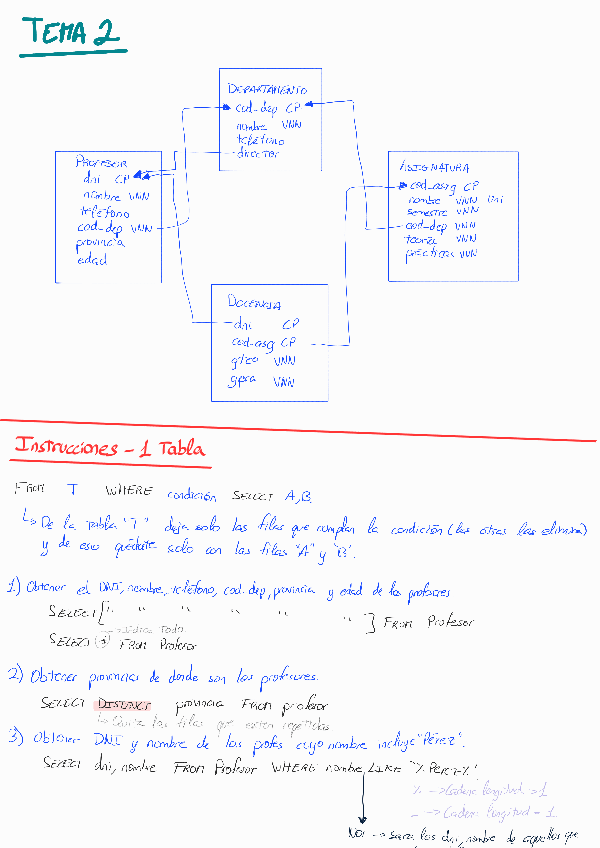 TEMA 2
DEPARTAMENTO
cod_dep CP
nombre VNN
teléfono
director
PROFESOR
dni CP
nombre VNN
teléfono
cod_dep VNN
provincia
edad
ASIGNATURA
cod_asg CP
nombre VNN Uni
semestre VNN
cod_dep VNN
teoría VNN
prácticas VNN
DOCENCIA
dni CP
cod_asg CP
gteo VNN
gpra VNN
Instrucciones - 1 Tabla
FROM T WHERE condición SELECT A,B
↳ De la tabla "T" deja solo las filas que cumplan la condición (las otras las elimina)
y de eso quédate solo con las filas "A" y "B".
1) Obtener el DNI, nombre, teléfono, cod. dep, provincia y edad de los profesores
SELECT [" " " " " "] FROM Profesor
Todo
SELECT (*) FROM Profesor
2) Obtener provincias de donde son los profesores.
SELECT DISTINCT provincia FROM profesor
↳ Quita las filas que estén repetidas
3) Obtener DNI y nombre de los profes cuyo nombre incluye "Pérez".
SELECT dni, nombre FROM Profesor WHERE nombre LIKE '%Pérez%'
% -> Cadena longitud >1
_ -> Cadena longitud = 1
Not -> saca los dni, nombre de aquellos que